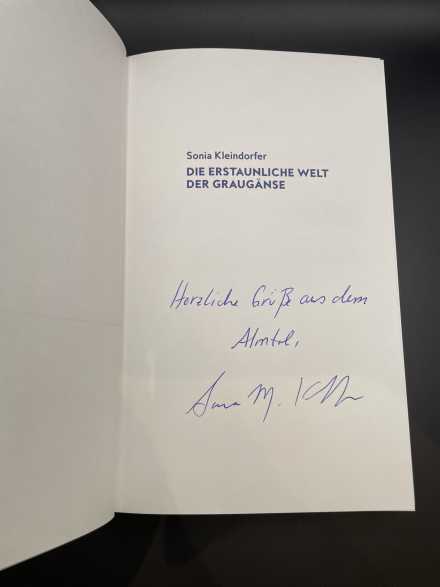 Sonia Kleindorfer
DIE ERSTAUNLICHE WELT
DER GRAUGÄNSE
Herzliche Grüße aus dem
Almtal,
Sonia M.